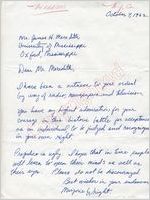 October 7, 1962
Mr. James H. Meredith,
University of Mississippi
Oxford, Mississippi
Dear Mr. Meredith,
I have been a witness to your ordeal
by way of radio, newspaper and television.
You have my highest admiration for your
courage in this historic battle for acceptance
as an individual to be judged and recognized
in your own right.
Prejudice is ugly. I hope that in time people
will learn to open their minds as well as
their eyes. Please do not be discouraged.
Best wishes in your endeavors
Marjorie Wright